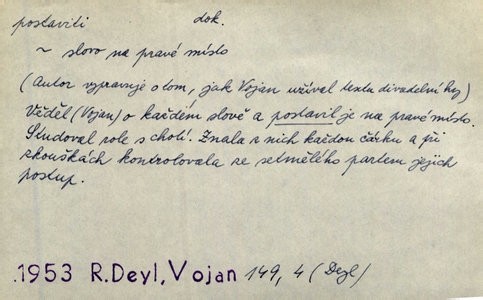 postaviti dok.
~ slovo na pravé místo
(Autor vypravuje o tom, jak Vojan užíval textu divadelní hry)
Věděl (Vojan) o každém slově a postavil je na pravé místo.
Studoval role s chotí. Znala z nich každou čárku a při
zkouškách kontrolovala ze setmělého parteru jejich
postup.
.1953 R.Deyl, Vojan 149, 4 (Deyl)